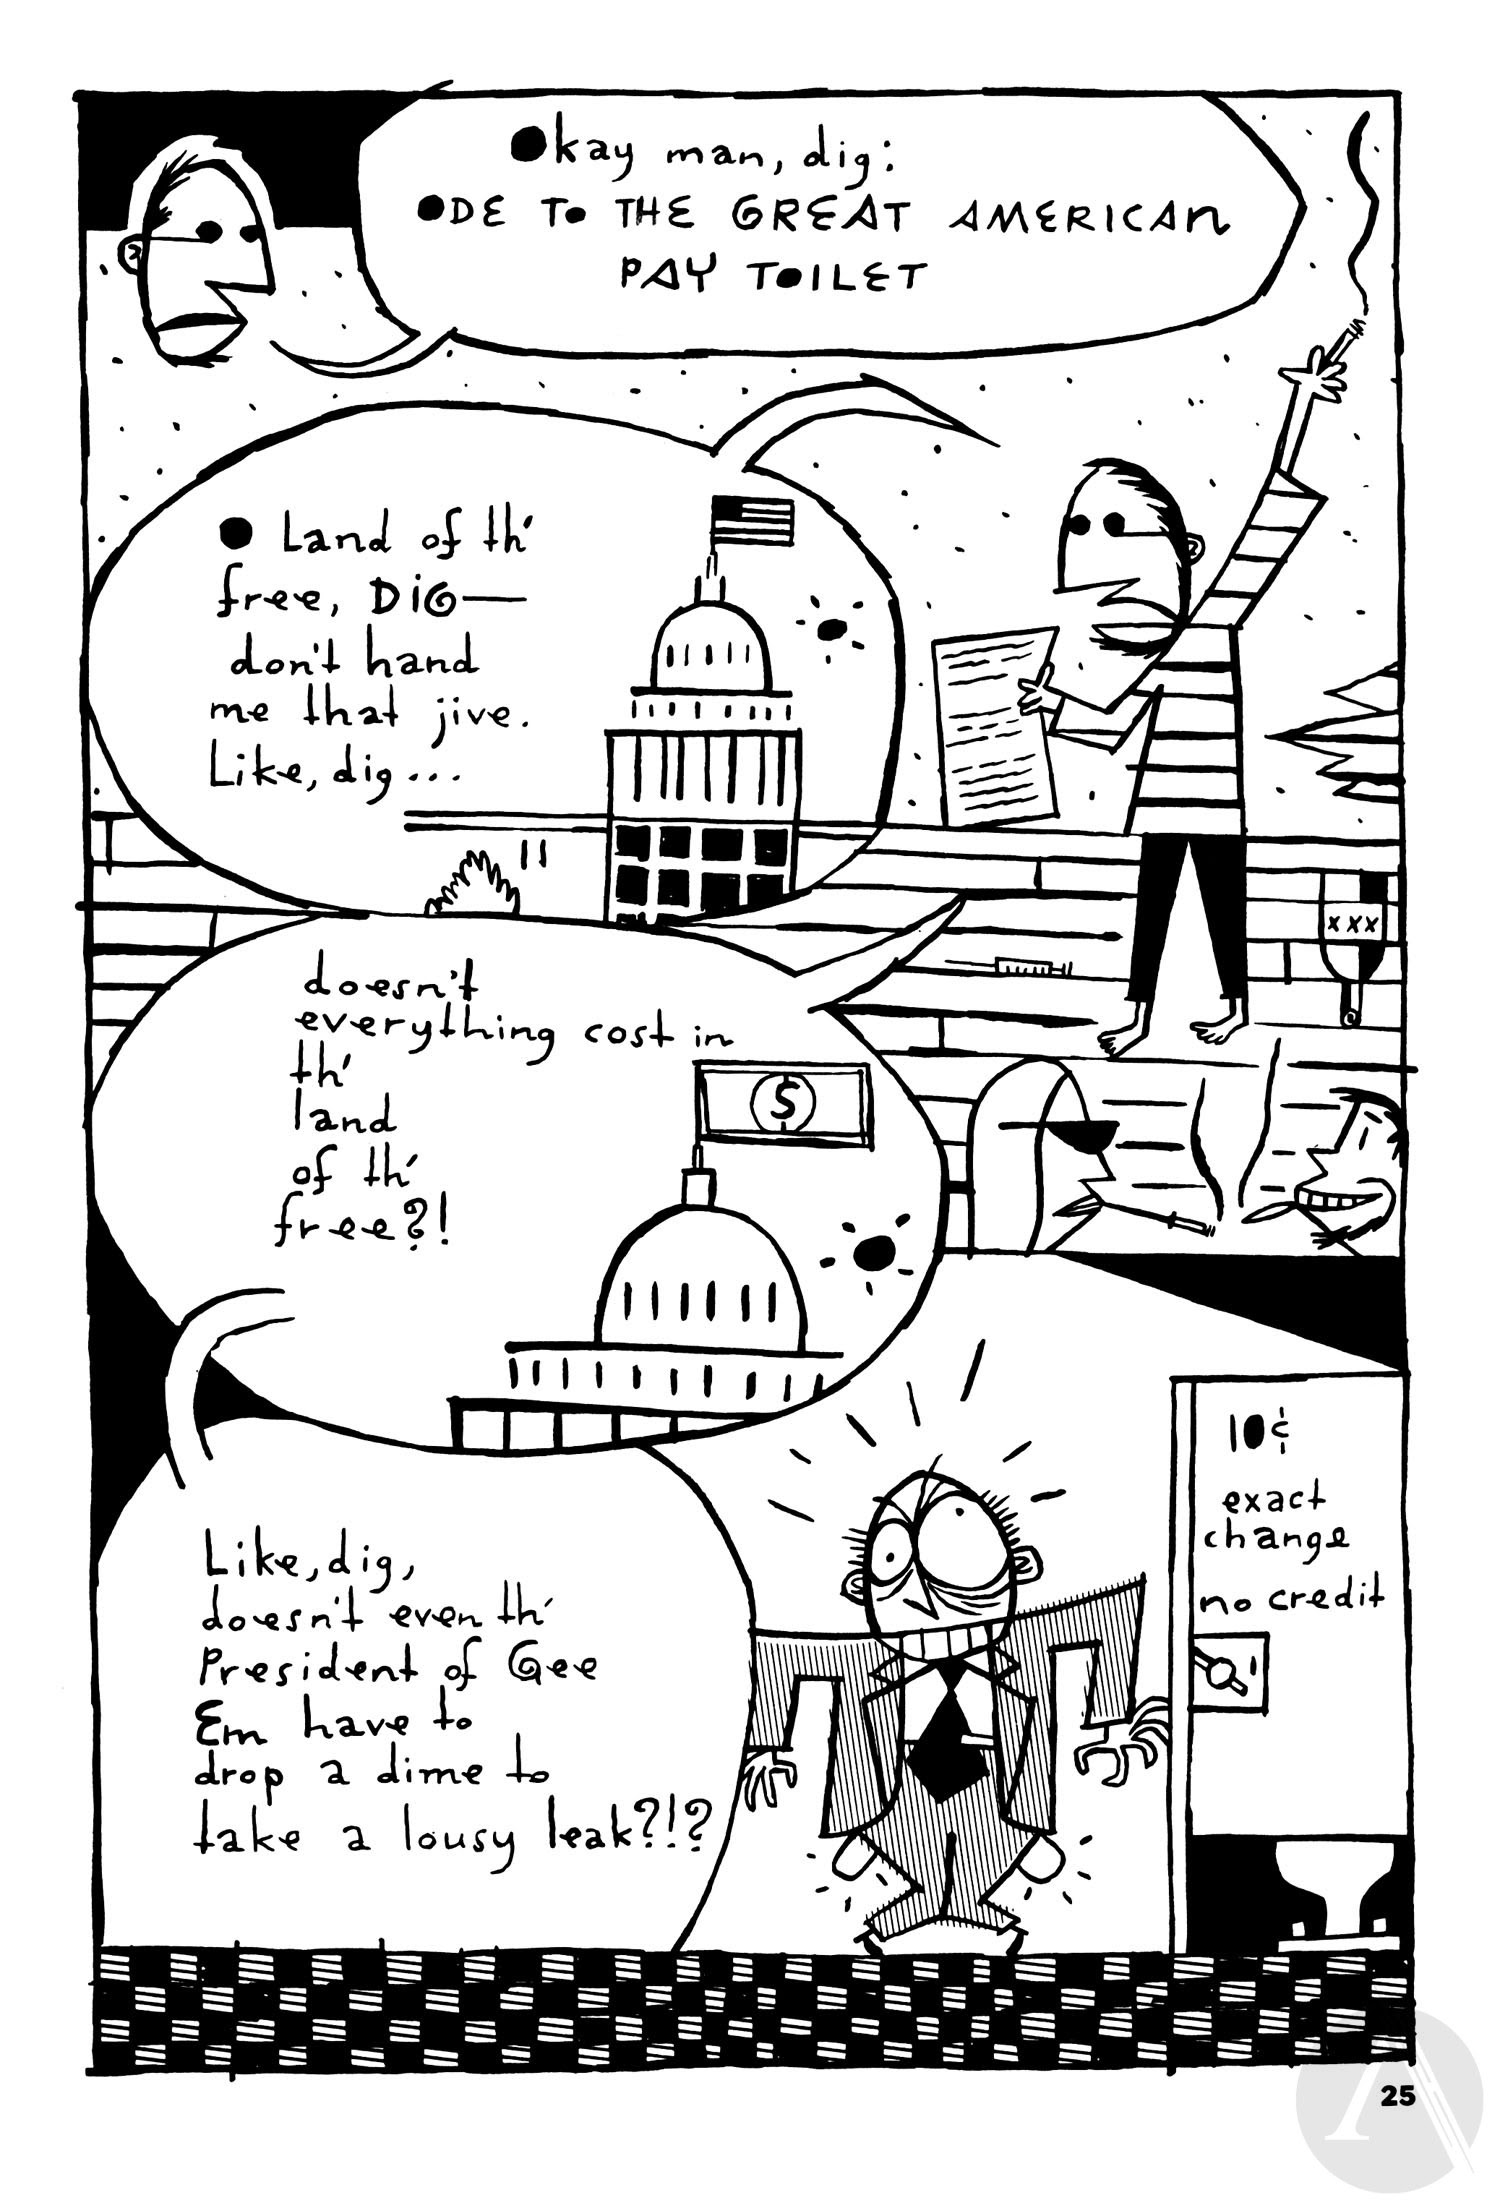 Okay man, dig:
ODE TO THE GREAT AMERICAN
PAY TOILET
O Land of th'
free, DIG—
don't hand
me that jive.
Like, dig...
XXX
doesn't
everything cost in
th'
land
of th'
free?!
$
10¢
exact
change
no credit
Like, dig,
doesn't even th'
President of Gee
Em have to
drop a dime to
take a lousy leak?!?
25
A